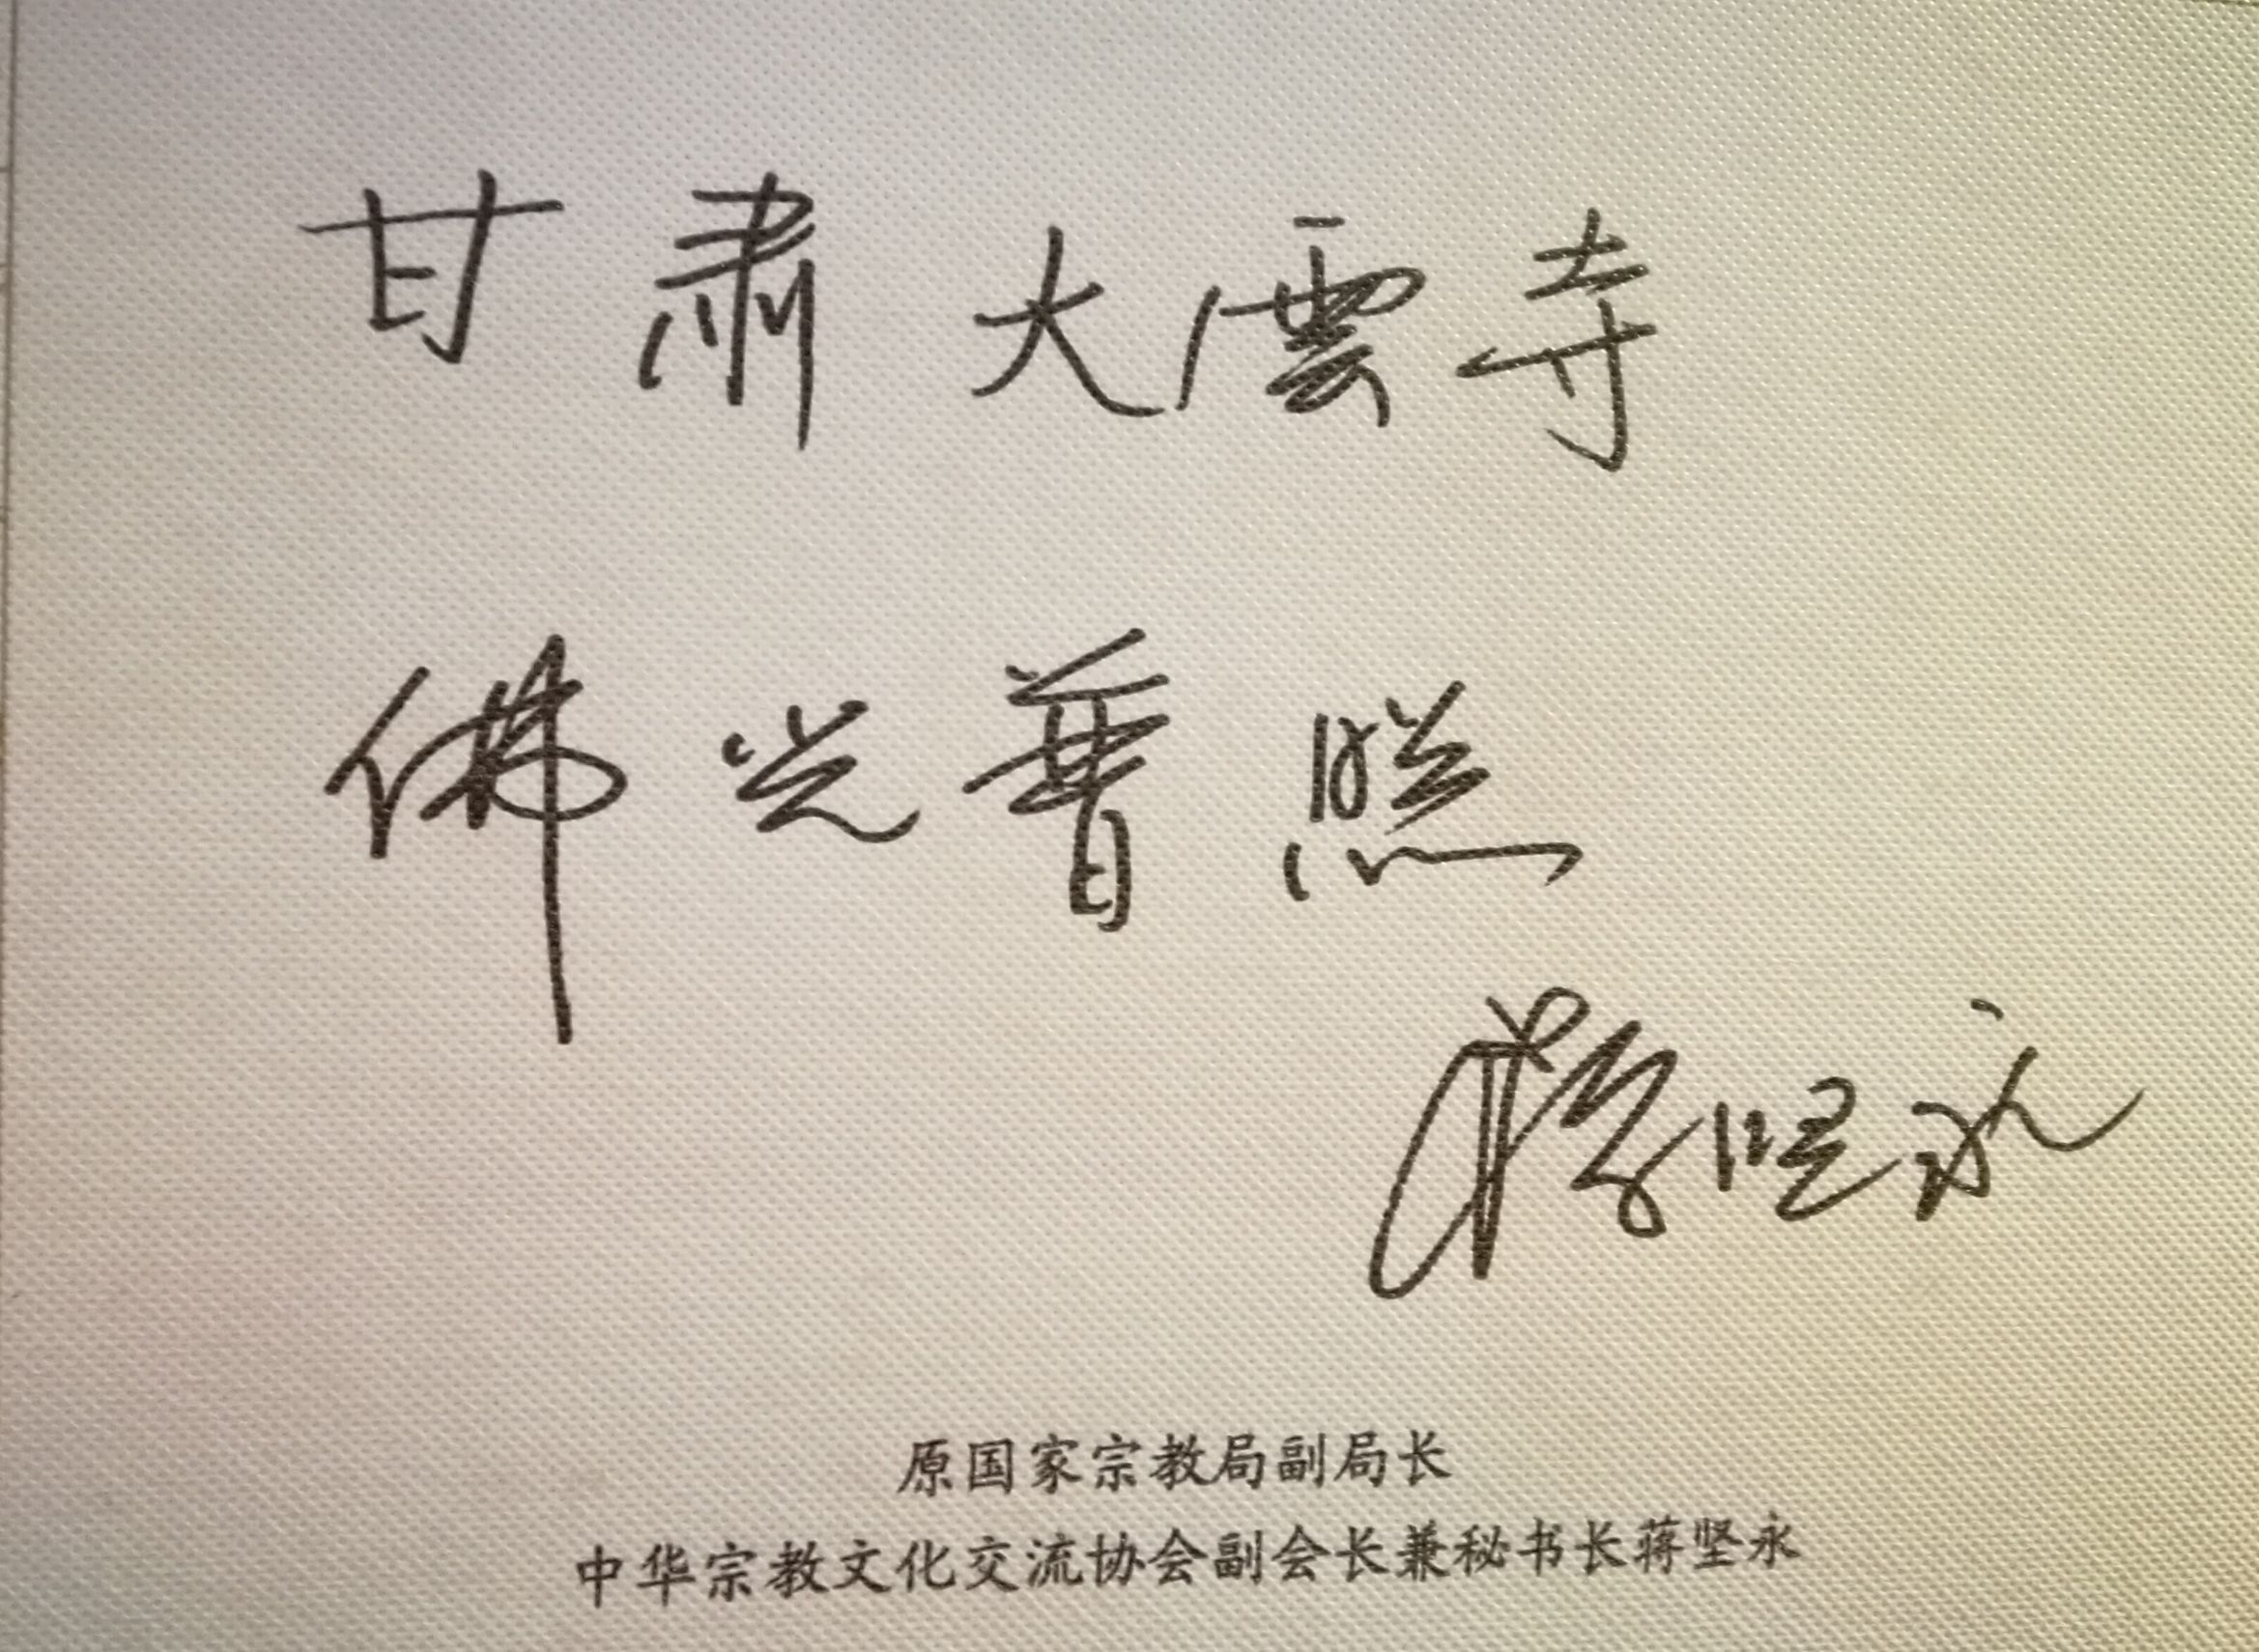 甘肃大雲寺
佛光普照
蒋坚永
原国家宗教局副局长
中华宗教文化交流协会副会长兼秘书长蒋坚永